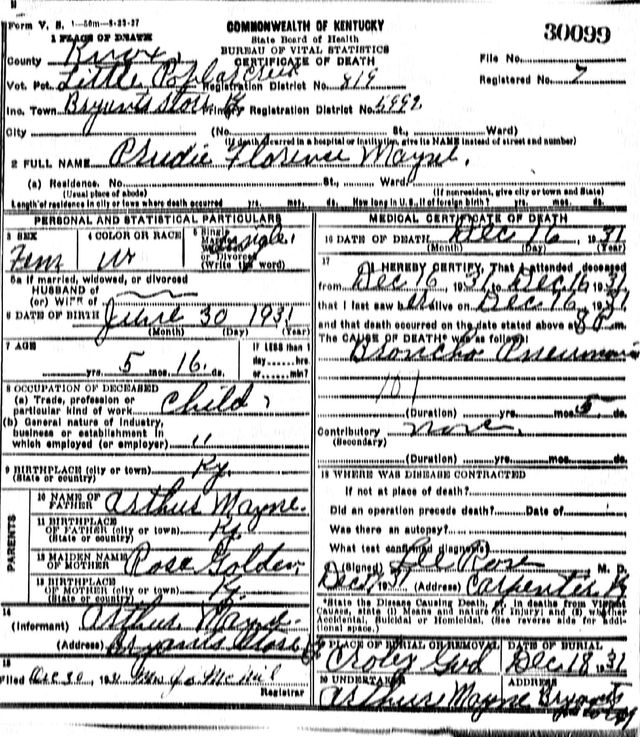 Form V. S. 1—50m—8-23-27
COMMONWEALTH OF KENTUCKY
State Board of Health
BUREAU OF VITAL STATISTICS
CERTIFICATE OF DEATH
30099
1 PLACE OF DEATH
County Knox
File No.
Vot. Pct. Little Poplar Creek Registration District No. 819
Registered No. 7
Inc. Town Bryants Store Ky Primary Registration District No. 4992
City (No. St., Ward)
(If death occurred in a hospital or institution, give its NAME instead of street and number)
2 FULL NAME Prudie Florence Mayne.
(a) Residence. No. St., Ward.
(Usual place of abode) (If nonresident, give city or town and State)
Length of residence in city or town where death occurred yrs. mos. ds. How long in U. S., if of foreign birth? yrs. mos. ds.
PERSONAL AND STATISTICAL PARTICULARS
3 SEX
Fem
4 COLOR OR RACE
W
5 Single
Married
Widowed
or Divorced
(Write the word)
single
5a If married, widowed, or divorced
HUSBAND of
(or) WIFE of
6 DATE OF BIRTH June 30 1931
(Month) (Day) (Year)
7 AGE
yrs. 5 mos. 16 ds.
IF LESS than 1
day hrs.
or min?
8 OCCUPATION OF DECEASED
(a) Trade, profession or
particular kind of work child
(b) General nature of industry,
business or establishment in
which employed (or employer) "
9 BIRTHPLACE (city or town) Ky.
(State or country)
PARENTS
10 NAME OF
FATHER Arthur Mayne.
11 BIRTHPLACE
OF FATHER (city or town) Ky.
(State or country)
12 MAIDEN NAME
OF MOTHER Rose Golden
13 BIRTHPLACE
OF MOTHER (city or town) Ky.
(State or country)
14
(Informant) Arthur Mayne
(Address) Bryants Store
15
Filed Dec 30, 1931 Mrs Jo McNeil
Registrar
MEDICAL CERTIFICATE OF DEATH
16 DATE OF DEATH Dec 16, 1931
(Month) (Day) (Year)
17
I HEREBY CERTIFY, That I attended deceased
from Dec 16, 1931, to Dec 16, 1931
that I last saw her alive on Dec 16, 1931
and that death occurred on the date stated above at m.
The CAUSE OF DEATH* was as follows:
Broncho Pneumonia
107
(Duration) yrs. mos. 5 ds.
Contributory none
(Secondary)
(Duration) yrs. mos. ds.
18 WHERE WAS DISEASE CONTRACTED
If not at place of death?
Did an operation precede death? Date of
Was there an autopsy?
What test confirmed diagnosis?
(Signed) Lee Rose M. D.
Dec (Address) Carpenter Ky
*State the Disease Causing Death, or, in deaths from Violent
Causes, state (1) Means and nature of Injury; and (2) whether
Accidental, Suicidal or Homicidal. (See reverse side for addi-
tional space.)
19 PLACE OF BURIAL OR REMOVAL
Croley Gvd
DATE OF BURIAL
Dec 18 1931
20 UNDERTAKER
Arthur Mayne
ADDRESS
Bryants